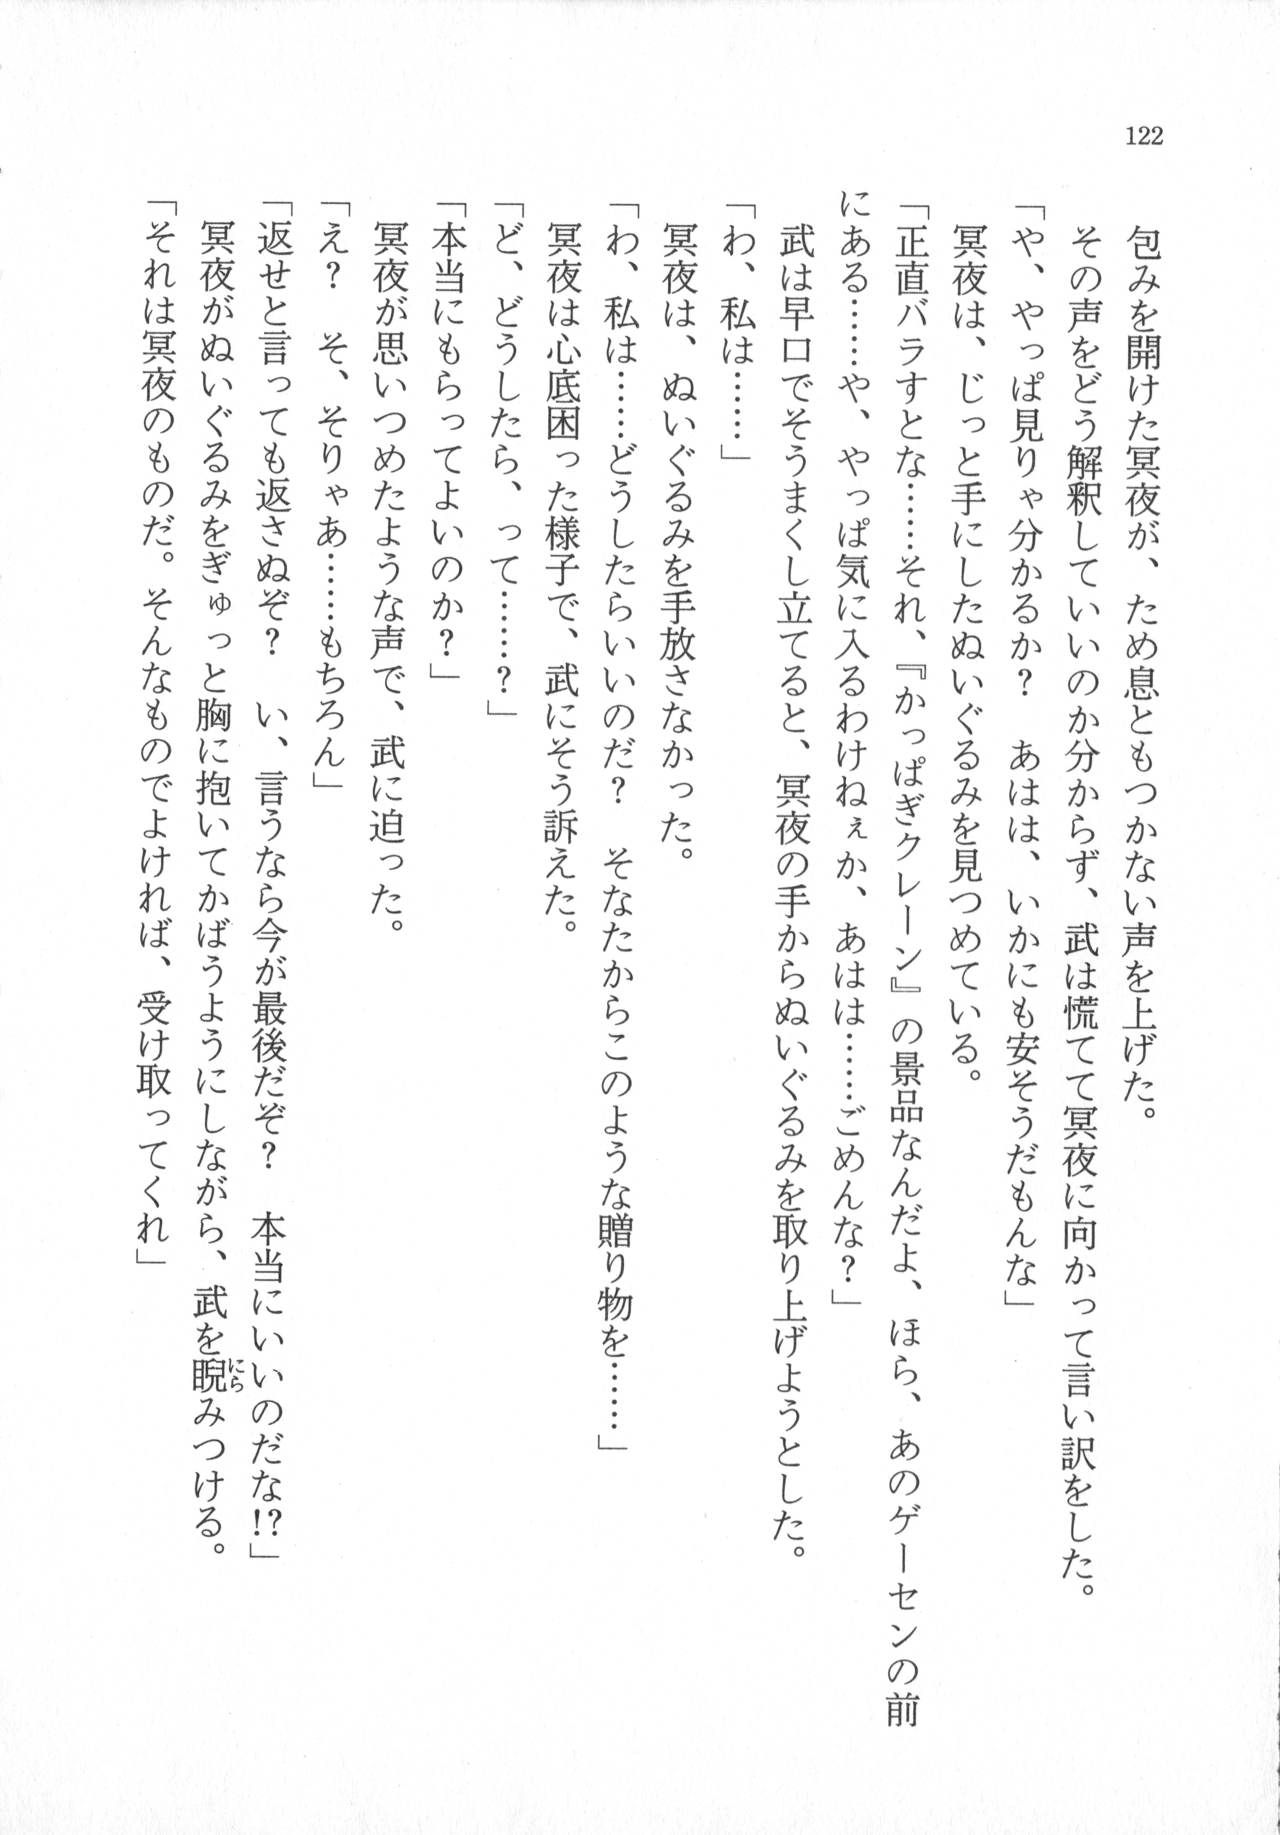 122
　包みを開けた冥夜が、ため息ともつかない声を上げた。
　その声をどう解釈していいのか分からず、武は慌てて冥夜に向かって言い訳をした。
「や、やっぱ見りゃ分かるか？　あはは、いかにも安そうだもんな」
　冥夜は、じっと手にしたぬいぐるみを見つめている。
「正直バラすとな……それ、『かっぱぎクレーン』の景品なんだよ、ほら、あのゲーセンの前
にある……や、やっぱ気に入るわけねぇか、あはは……ごめんな？」
　武は早口でそうまくし立てると、冥夜の手からぬいぐるみを取り上げようとした。
「わ、私は……」
　冥夜は、ぬいぐるみを手放さなかった。
「わ、私は……どうしたらいいのだ？　そなたからこのような贈り物を……」
　冥夜は心底困った様子で、武にそう訴えた。
「ど、どうしたら、って……？」
「本当にもらってよいのか？」
　冥夜が思いつめたような声で、武に迫った。
「え？　そ、そりゃあ……もちろん」
「返せと言っても返さぬぞ？　い、言うなら今が最後だぞ？　本当にいいのだな!?」
　冥夜がぬいぐるみをぎゅっと胸に抱いてかばうようにしながら、武を睨みつける。
にら
「それは冥夜のものだ。そんなものでよければ、受け取ってくれ」